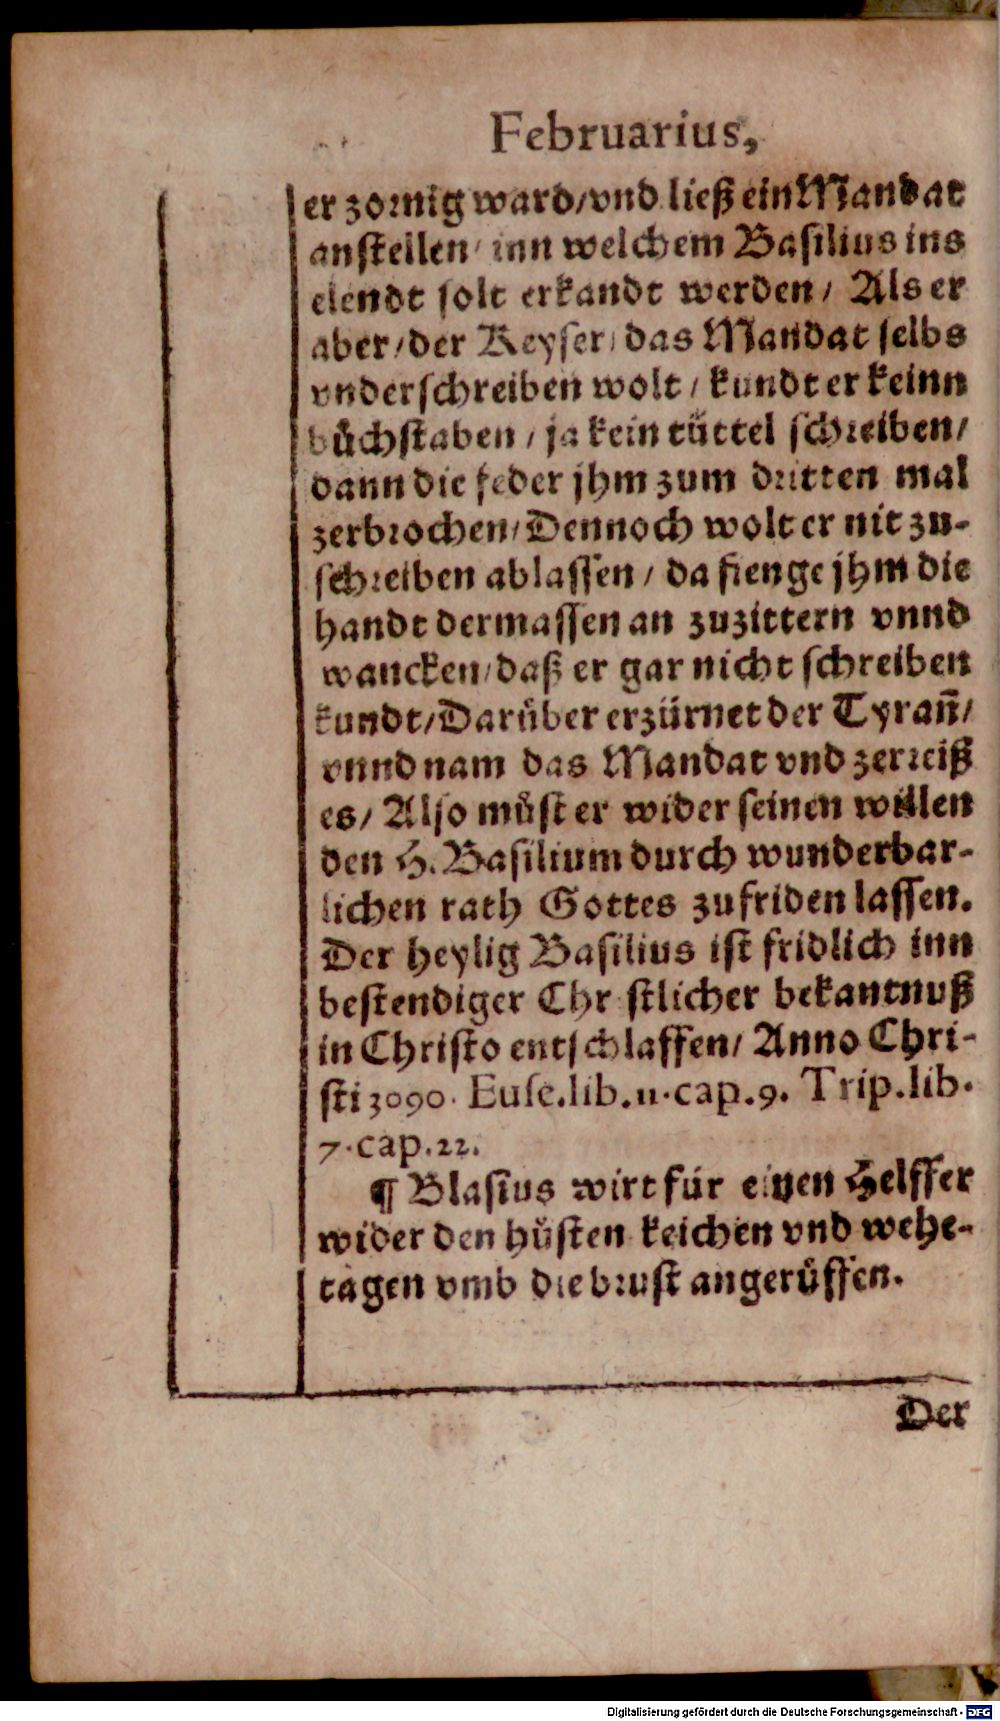 Februarius,
er zornig ward/vnd ließ ein Mandat
anstellen/ inn welchem Basilius ins
elendt solt erkandt werden/ Als er
aber/der Keyser/das Mandat selbs
vnderschreiben wolt/ kundt er keinn
bůchstaben/ ja kein tüttel schreiben/
dann die feder jhm zum dritten mal
zerbrochen/Dennoch wolt er nit zu-
schreiben ablassen/ da fienge jhm die
handt dermassen an zuzittern vnnd
wancken/daß er gar nicht schreiben
kundt/Darüber erzürnet der Tyrañ/
vnnd nam das Mandat vnd zerreiß
es/ Also můst er wider seinen willen
den H. Basilium durch wunderbar-
lichen rath Gottes zufriden lassen.
Der heylig Basilius ist fridlich inn
bestendiger Chr stlicher bekantnuß
in Christo entschlaffen/ Anno Chri-
sti 3090. Euse.lib.11.cap.9. Trip.lib.
7.cap.22.
¶ Blasius wirt für einen Helffer
wider den hůsten keichen vnd wehe-
tagen vmb die brust angerůffen.
Der
Digitalisierung gefördert durch die Deutsche Forschungsgemeinschaft - DFG